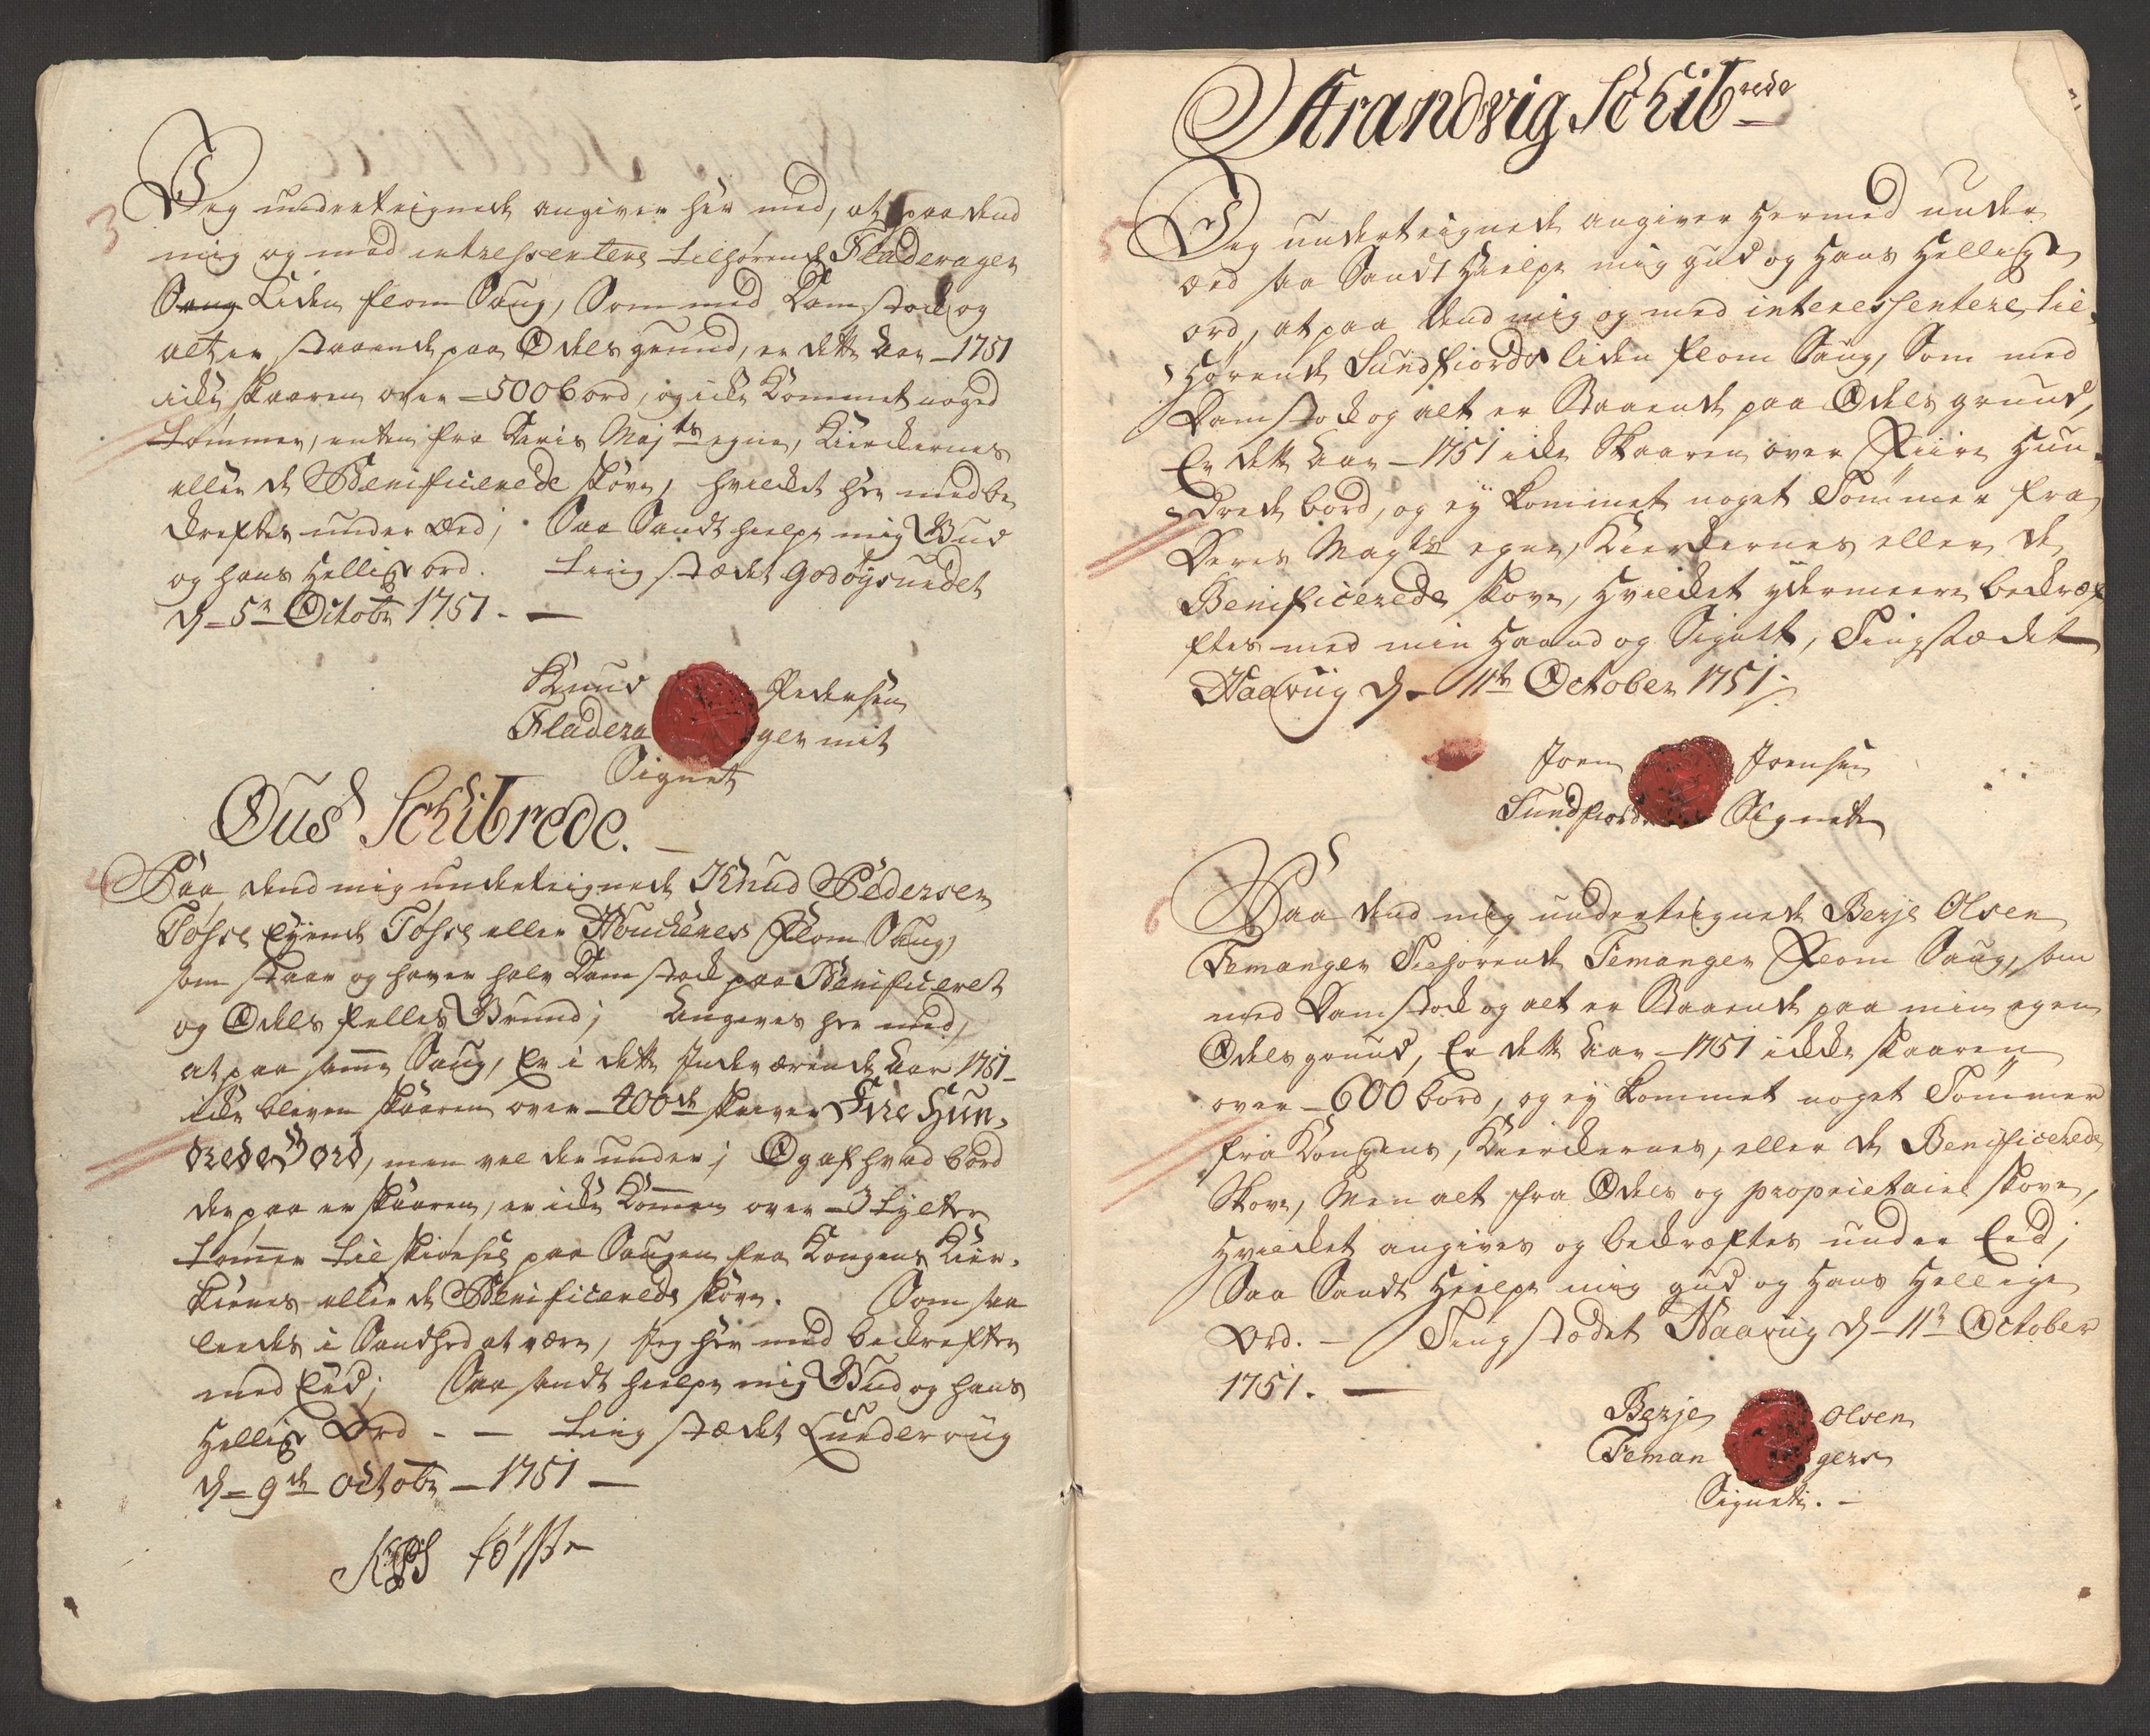 3
Jeg underteignede angiver her med, at paa dend
mig og med intressentere tilhørende Fladerager
Saug Liden flom Saug, Som med Damstock og
alt er staaende paa Odels grund, er dette Aar 1751
icke skaaren over 500 bord, og icke Kommet noged
tømmer, enten fra Deris Majts egne, Kierckernes
eller de Benificerede skove, hvilcket her med be
kreftes under Eed; Saa Sandt hielpe mig Gud
og hans Hellige ord. Ting stædet Godøysundet
d. 5te Octobr 1751.
Knud Pedersen
Fladerager mit
Signet
Ous Schibrede.
4
Paa dend mig underteignede Knud Pedersen
Tøsse Eyende Tøsse eller Houckenes Flom Saug,
som staar og haver halv Damstock paa Benificeret
og Odels felles Grund; Angives her med,
at paa samme Saug, Er i dette Indeværende Aar 1751
icke bleven skaaren over 400de skriver Fire Hun-
drede Bord, men vel der under; Og af hvad bord
der paa er skaaren, er icke Kommen over 3 tylter
tømmer til skiøhsel paa Saugen fra Kongens Kier-
kernes eller de Benificerede skove. Som saa
leedes i Sandhed at være, Jeg her med bekrefter
med Eed; Saa sandt hielpe mig Gud og hans
Hellige Ord. Ting stædet Lunderviig
d. 9de Octobr 1751
KPS Tøsse
Strandvig Schibrede
5
Jeg underteignede angiver Hermed under
Eed saa Sandt Hielpe mig gud og Hans Hellige
ord, at paa dend mig og med interessentere til-
Hørende Sundfiords liden flom Saug, Som med
Damstock og alt er Staaende paa Odels grund,
Er dette Aar 1751 icke Skaaren over Fiire Hun-
drede bord, og ey kommet noget Tømmer fra
Deres Mayts egne, Kierckernes eller de
Benificerede skove, Hvilcket ydermeere bekræf
ftes med min Haand og Signet, Tingstædet
Haaviig d. 11te October 1751.
Joen Joensen
Sundfiords Signete
6
Paa dend mig underteignede Berje Olsen
Femanger Tilhørende Femanger Flom Saug, som
med Damstock og alt er Staaende paa min egen
Odels grund, Er dette Aar 1751 ickke skaaren
over 600 bord, og ey kommet noget Tømmer
fra Kongens, Kierckernes, eller de Benificerede
Skove, Men alt fra Odels og proprietaire skove,
Hvilcket angives og bekræftes under Eed;
Saa Sandt Hielpe mig gud og Hans Hellige
Ord. Tingstædet Haaviig d. 11te October
1751.
Berje Olsen
Femangers
Signete.